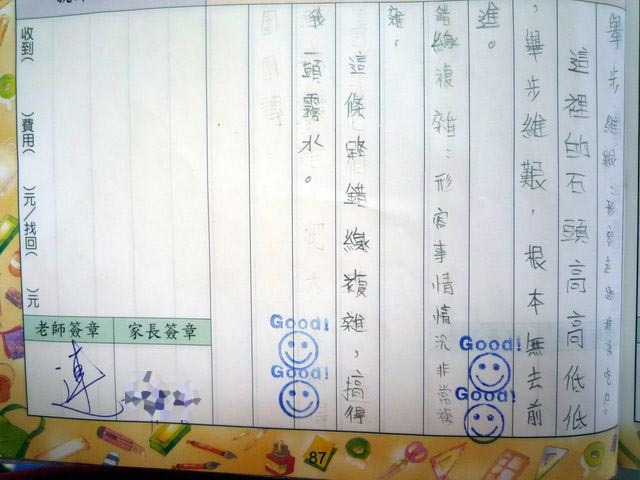 舉步維艱:形容走路非常吃力。
這裡的石頭高高低低
,舉步維艱,根本無去前
進。
錯線複雜:形容事情情況非常複
雜。
這條路錯線複雜,搞得
一頭霧水。
Good!
Good!
Good!
Good!
收到( )費用( )元/找回( )元
老師簽章
家長簽章
連
87